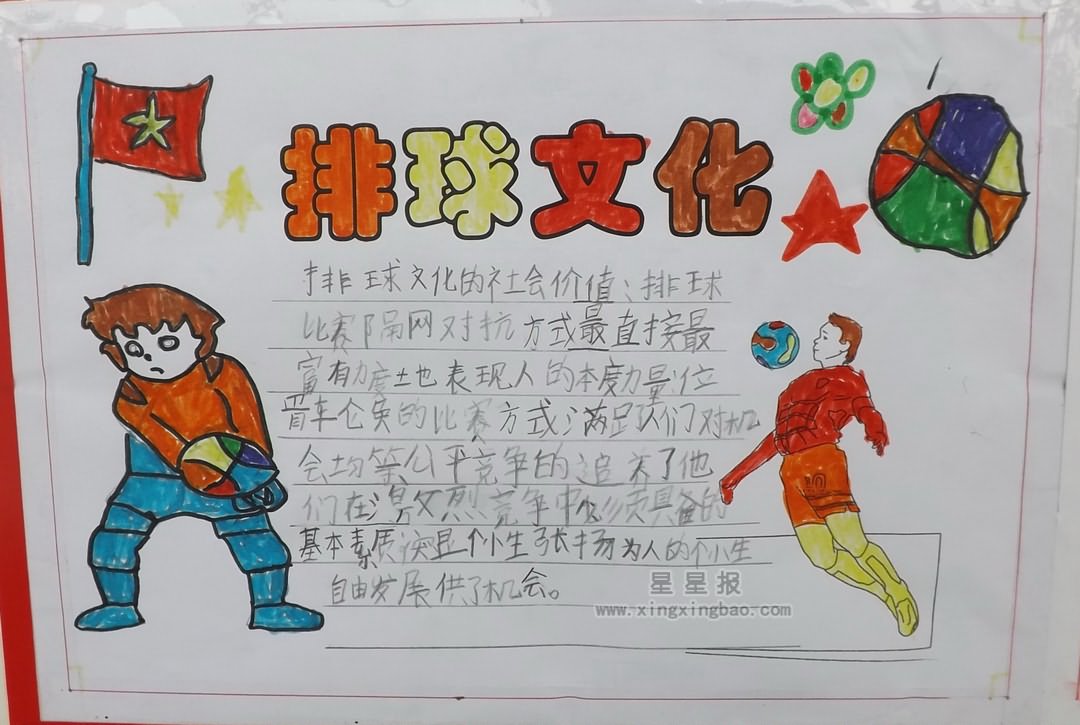 排球文化
排球文化的社会价值：排球
比赛隔网对抗方式最直接最
富有力度地表现人的本度力量位
的比赛方式；满足队们对机
会均等公平竞争的追 了他
们在 烈竞争中必须具备的
基本素质 显个小生张扬为人的个小生
自由发展供了机会。
星星报
www.xingxingbao.com
10